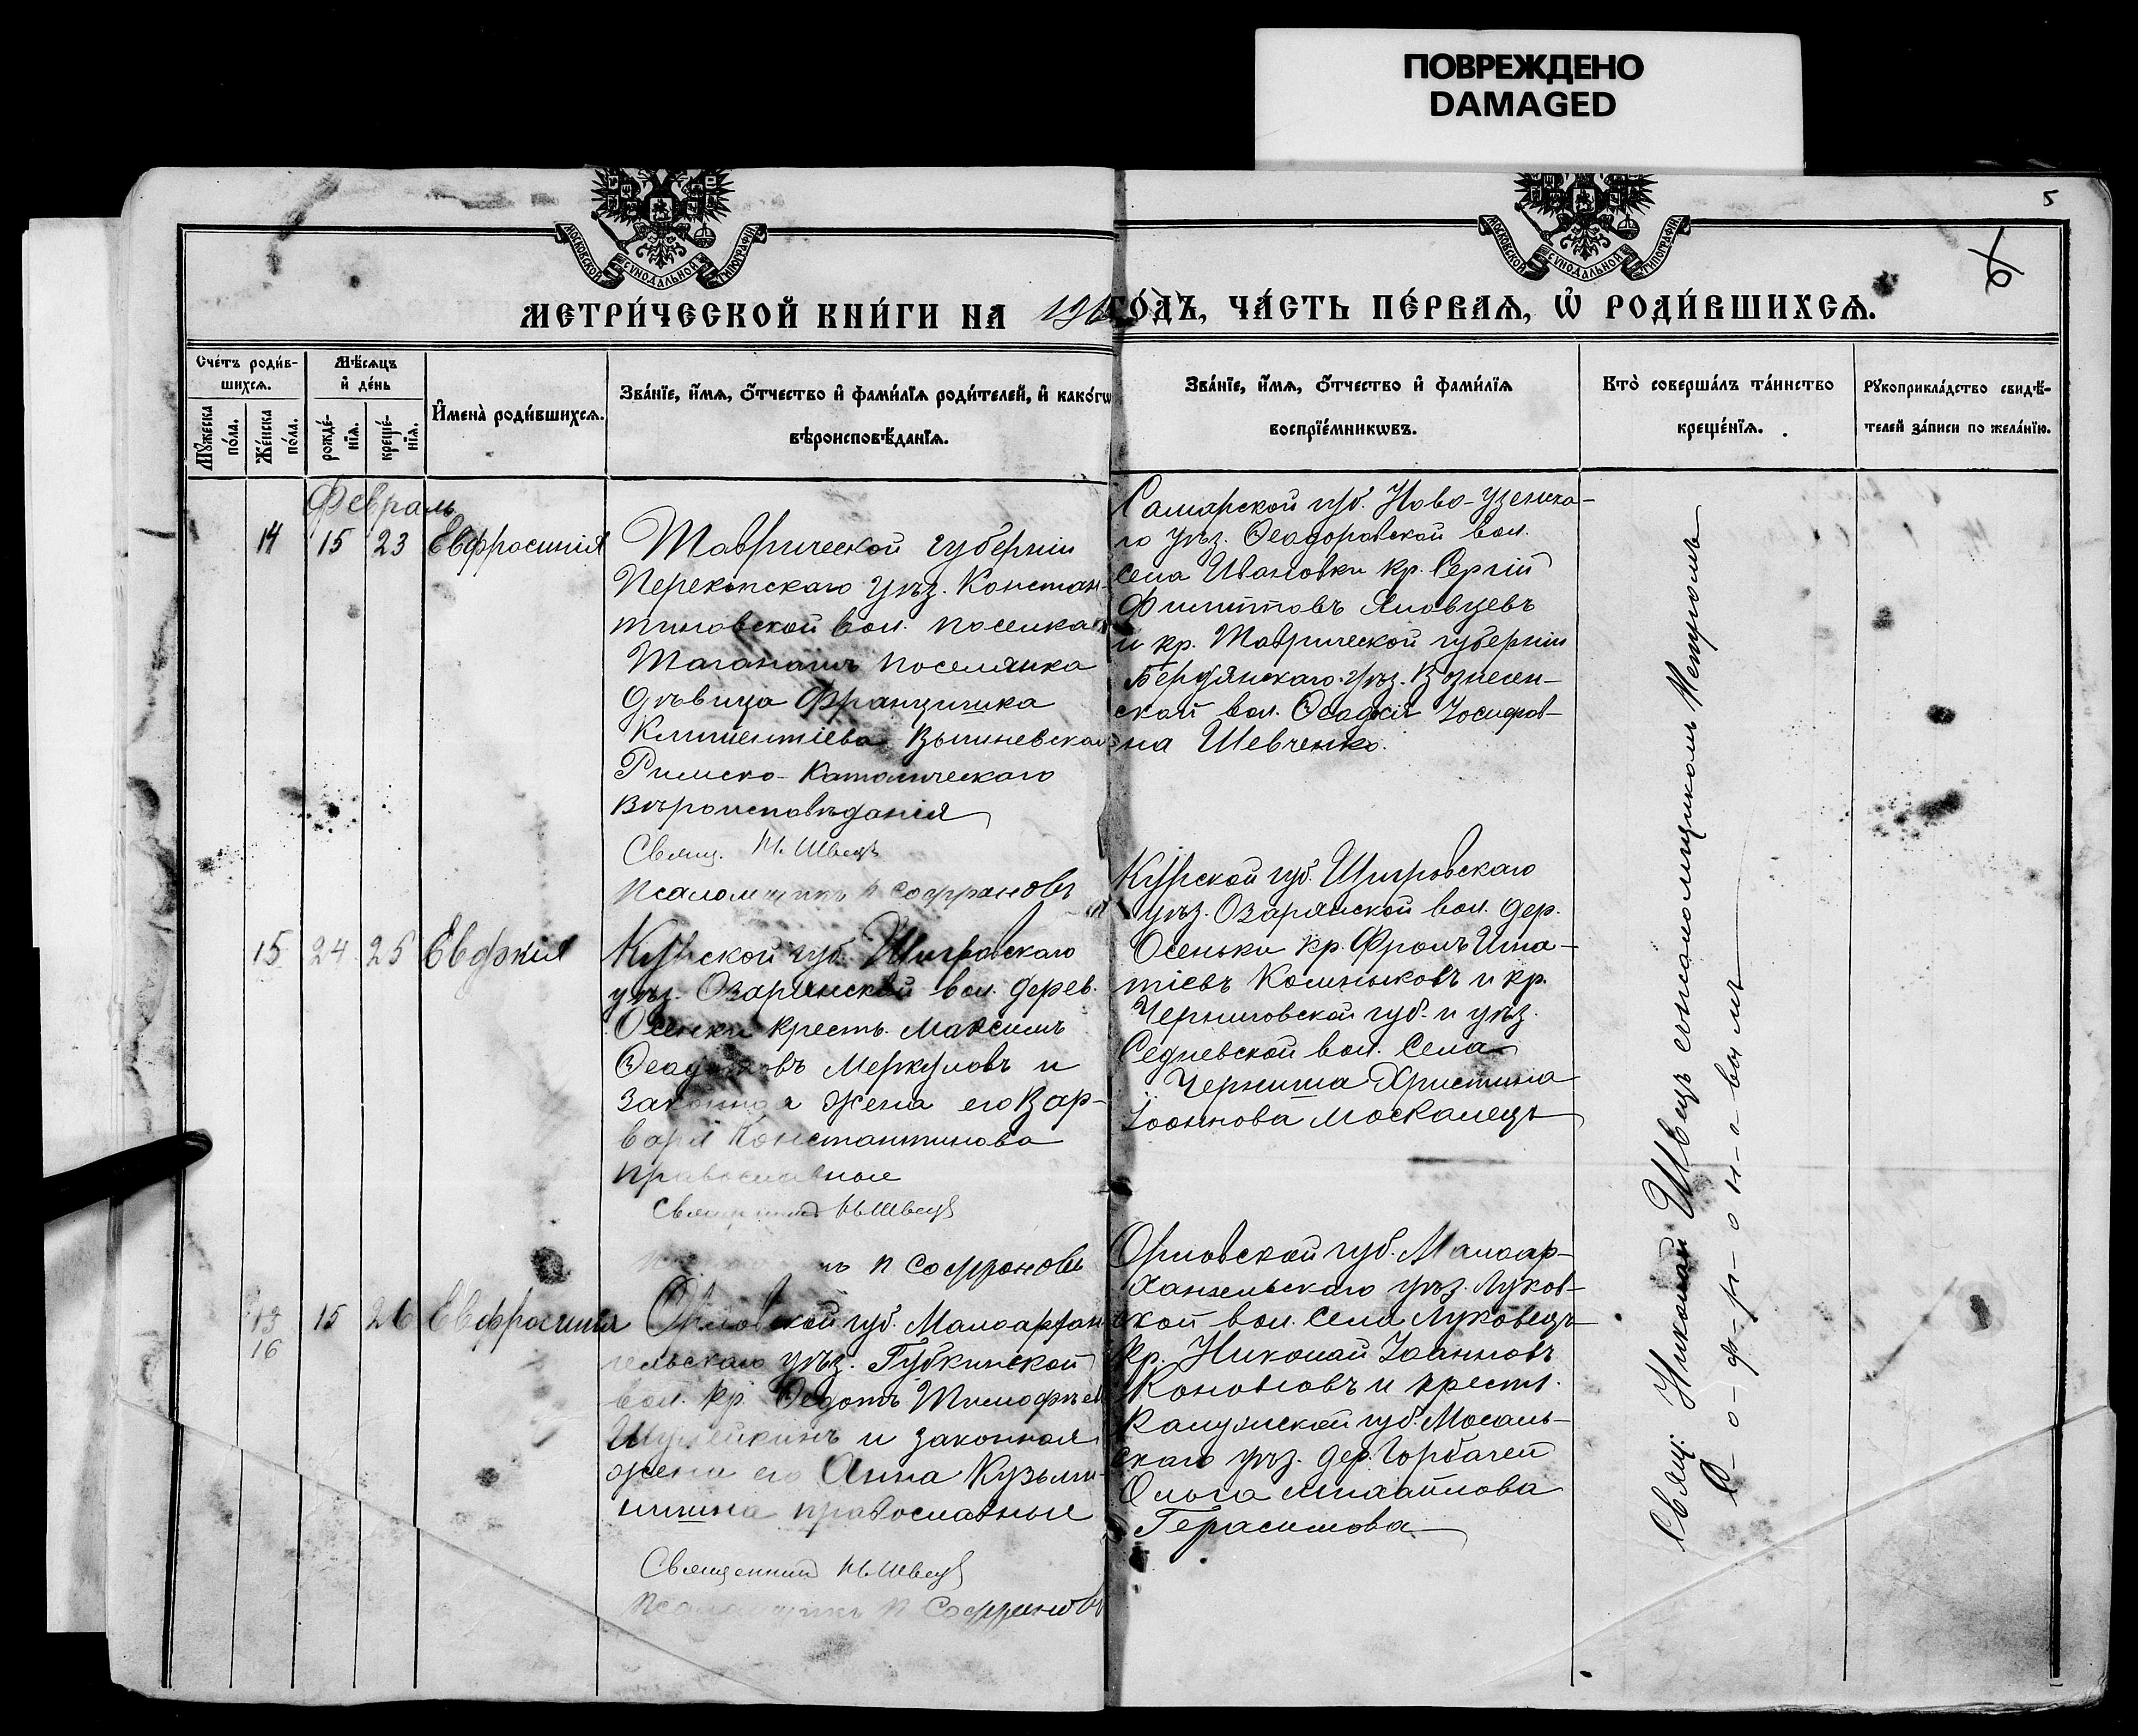 ПОВРЕЖДЕНО
DAMAGED
5
6
МОСКОВСКОЙ СѴНОДАЛЬНОЙ ТИПОГРАФІИ
МОСКОВСКОЙ СѴНОДАЛЬНОЙ ТИПОГРАФІИ
МЕТРИ́ЧЕСКОЙ КНИ́ГИ НА 191
ГО́ДЪ, ЧА́СТЬ ПЕ́РВАѦ, Ѡ҆ РОДИ́ВШИХСѦ.
Сче́тъ роди́в-
шихсѧ.
Мꙋ́жеска
по́ла.
Же́нска
по́ла.
Мѣ́сѧцъ
и҆ де́нь
рожде́-
нїѧ.
креще́-
нїѧ.
И҆мена̀ роди́вшихсѧ.
Зва́нїе, и҆́мѧ, ѻ҆́тчество и҆ фами́лїѧ роди́телей, и҆ како́гѡ
вѣроисповѣ́данїѧ.
Зва́нїе, и҆́мѧ, ѻ҆́тчество и҆ фами́лїѧ
воспрїе́мникѡвъ.
Кто̀ соверша́лъ та́инство
креще́нїѧ.
Рꙋкоприкла́дство свидѣ́-
телей за́писи по жела́нїю.
Февраль
14 15 23 Евфросинія
Таврической губерніи
Перекопскаго уѣз. Констан-
тиновской вол. поселка
Таганашъ поселянка
дѣвица Францишка
Климентіева Вышневская
Римско-Католическаго
вѣроисповѣданія
Свящ. Н. Швецъ
Псаломщикъ П Софроновъ
Самарской губ. Ново-Узенска-
го уѣз. Ѳеодоровской вол.
села Ивановки кр. Сергій
Филипповъ Яловцевъ
и кр. Таврической губерніи
Бердянскаго уѣз. Вознесен-
ской вол. Іосифов-
на Шевченко.
15 24 25 Евдокія
Курской губ. Щигровскаго
уѣз. Озарянской вол. дерев.
Осеньки крестъ. Максимъ
Меркуловъ и
Законная жена его Вар-
вара Константинова
православные
Священникъ Н. Швецъ
П Софроновъ
Курской губ. Щигровскаго
уѣз. Озарянской вол. дер.
Осеньки кр. Фролъ Игна-
тіевъ и кр.
Черниговской губ. и уѣз.
Седневской вол. села
Черниша Христина
Іоаннова Москалецъ
15 15 26 Евфросинія
16
Орловской губ. Малоархан
гельскаго уѣз. Губкинской
вол. кр. Ѳедотъ Тимофѣев
и законная
жена его Анна Кузьми-
нишна православные
Священникъ Н. Швецъ
Псаломщикъ П Софроновъ
Орловской губ. Малоар-
хангельскаго уѣз. Луков-
ской вол. села Луковецъ
кр. Николай Іоанновъ
Коноваловъ и крест.
Калужской губ. Мосаль-
скаго уѣз. дер. Горбачей
Ольга Михайлова
Герасимова
Свящ. Николай Швецъ съ псаломщикомъ Петромъ
С-о-ф-р-о-н-о-вымъ